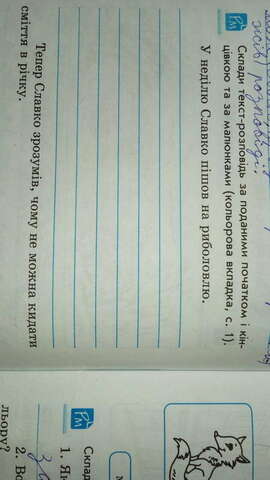 жсів) розповіді.
РМ
Склади текст-розповідь за поданими початком і кін-
цівкою та за малюнками (кольорова вкладка, с. 1).
У неділю Славко пішов на риболовлю.
Тепер Славко зрозумів, чому не можна кидати
сміття в річку.
РМ
Склад
1. Як
2. Во
льору?